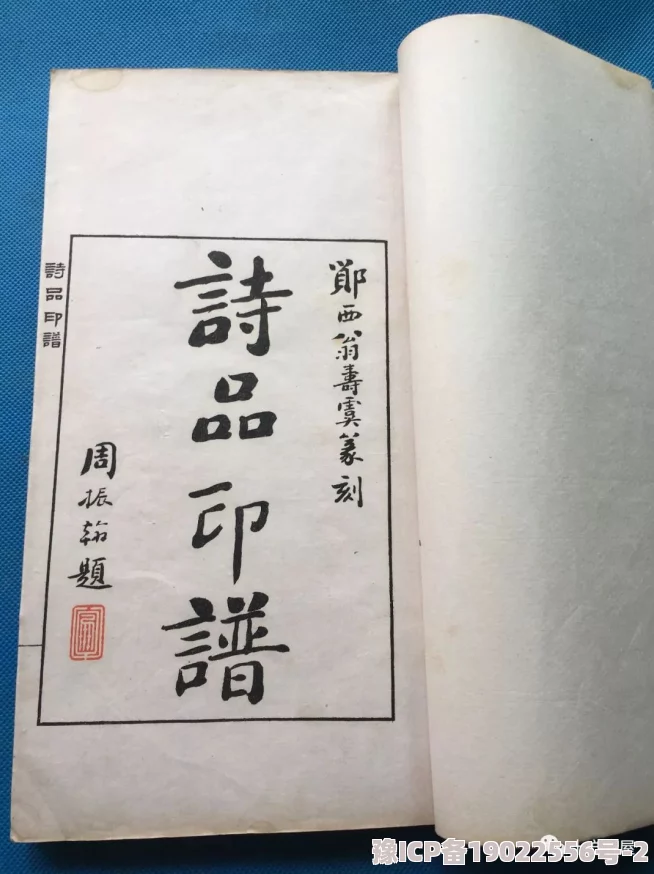 鄖西翁壽虞篆刻
詩品印譜
周振翰題
詩品印譜
豫ICP备19022556号-2